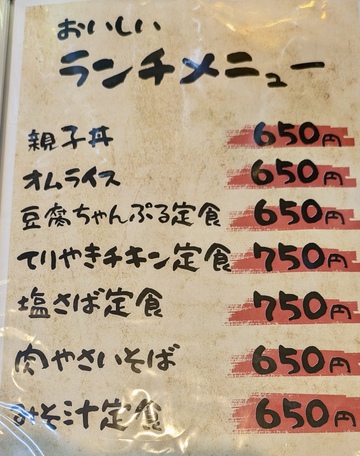 おいしい
ランチメニュー
親子丼 650円
オムライス 650円
豆腐ちゃんぷる定食 650円
てりやきチキン定食 750円
塩さば定食 750円
肉やさいそば 650円
みそ汁定食 650円